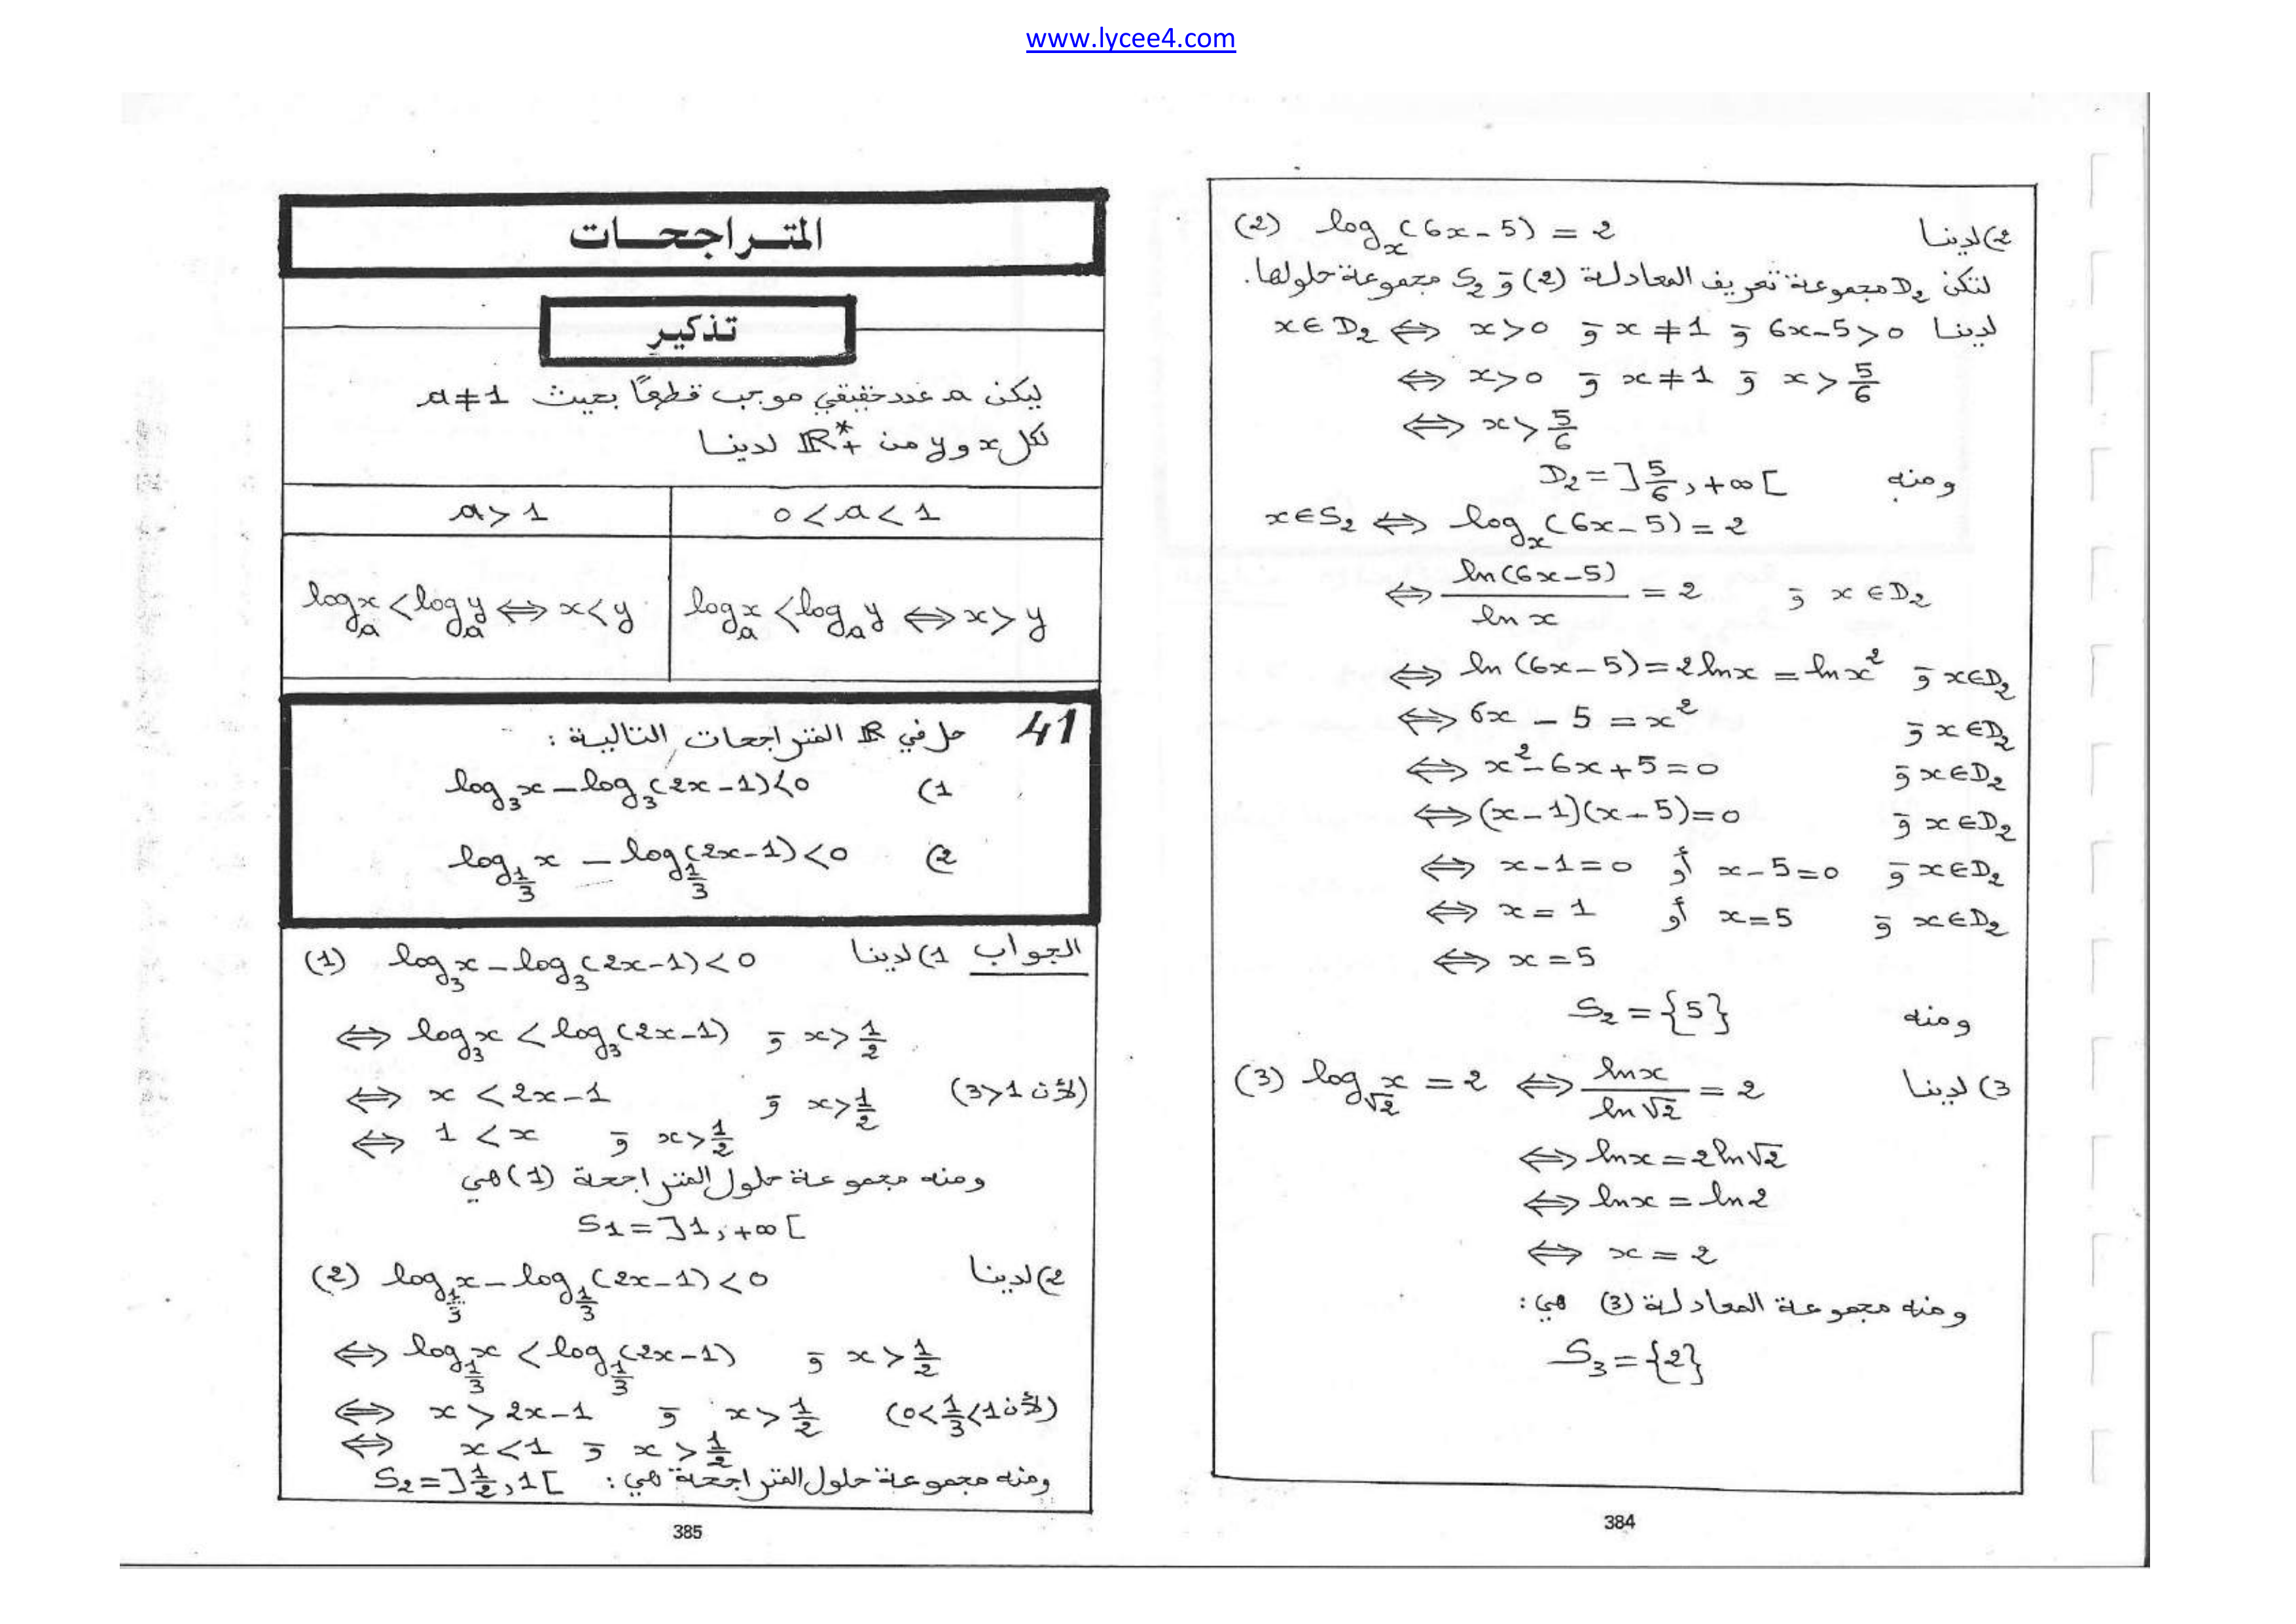 www.lycee4.com
2) لدينا (2) log_x(6x-5) = 2
لتكن D₂ مجموعة تعريف المعادلة (2) و S₂ مجموعة حلولها.
لدينا x∈D₂ ⇔ x>0 و x≠1 و 6x-5>0
⇔ x>0 و x≠1 و x>5/6
⇔ x>5/6
ومنه D₂=]5/6,+∞[
x∈S₂ ⇔ log_x(6x-5)=2
⇔ ln(6x-5)/ln x = 2 و x∈D₂
⇔ ln(6x-5)=2lnx=lnx² و x∈D₂
⇔ 6x-5=x² و x∈D₂
⇔ x²-6x+5=0 و x∈D₂
⇔ (x-1)(x-5)=0 و x∈D₂
⇔ x-1=0 أو x-5=0 و x∈D₂
⇔ x=1 أو x=5 و x∈D₂
⇔ x=5
ومنه S₂={5}
3) لدينا (3) log_√2 x = 2 ⇔ lnx/ln√2 = 2
⇔ lnx=2ln√2
⇔ lnx=ln2
⇔ x=2
ومنه مجموعة المعادلة (3) هي:
S₃={2}
384
المتراجحات
تذكير
ليكن a عدد حقيقي موجب قطعًا بحيث a≠1
لكل x و y من ℝ*₊ لدينا
a>1 0<a<1
log_a x < log_a y ⇔ x<y log_a x < log_a y ⇔ x>y
41 حل في ℝ المتراجحات التالية:
1) log₃x-log₃(2x-1)<0
2) log_1/3 x - log_1/3(2x-1)<0
الجواب 1) لدينا (1) log₃x-log₃(2x-1)<0
⇔ log₃x<log₃(2x-1) و x>1/2
⇔ x<2x-1 و x>1/2 (لأن 3>1)
⇔ 1<x و x>1/2
ومنه مجموعة حلول المتراجحة (1) هي
S₁=]1,+∞[
2) لدينا (2) log_1/3 x-log_1/3(2x-1)<0
⇔ log_1/3 x<log_1/3(2x-1) و x>1/2
⇔ x>2x-1 و x>1/2 (لأن 0<1/3<1)
⇔ x<1 و x>1/2
ومنه مجموعة حلول المتراجحة هي: S₂=]1/2,1[
385